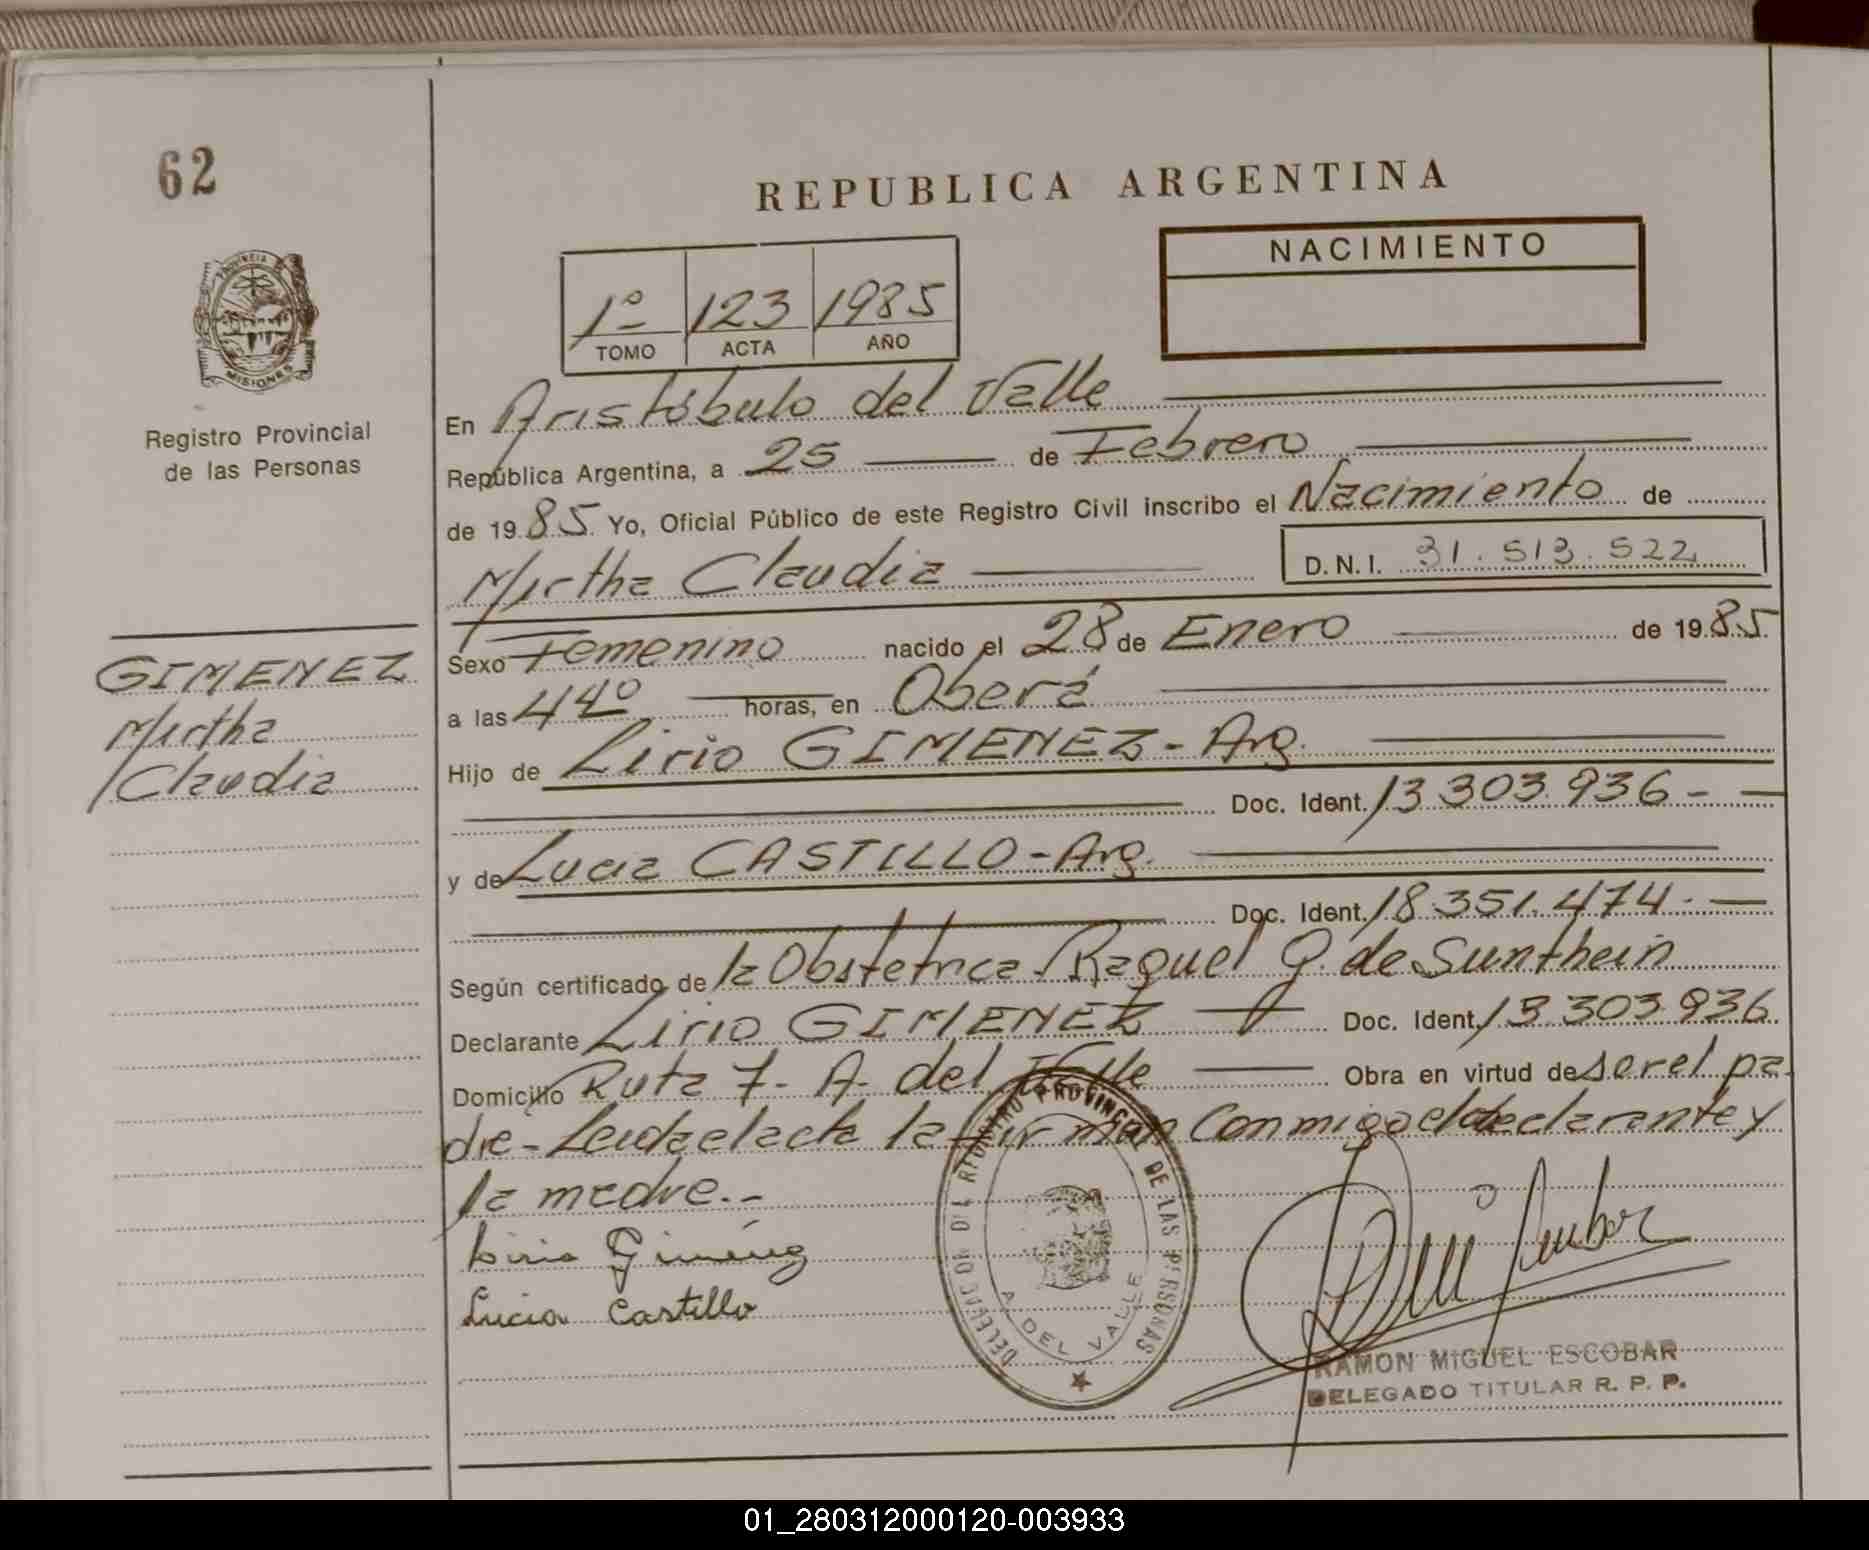 62
REPUBLICA ARGENTINA
NACIMIENTO
1º 123 1985
TOMO ACTA AÑO
PROVINCIA DE
MISIONES
Registro Provincial
de las Personas
En Aristóbulo del Valle
República Argentina, a 25 de Febrero
de 1985 Yo, Oficial Público de este Registro Civil inscribo el Nacimiento de
Mirtha Claudia D.N.I. 31.513.522
GIMENEZ
Mirtha
Claudia
Sexo Femenino nacido el 28 de Enero de 1985
a las 4 4º horas, en Oberá
Hijo de Lirio GIMENEZ - Arg.
Doc. Ident. 13.303.936 -
y de Lucia CASTILLO - Arg.
Doc. Ident. 18.351.474. -
Según certificado de la Obstetrica Raquel G. de Sunthein
Declarante Lirio GIMENEZ Doc. Ident. 13.303.936
Domicilio Ruta 7 - A. del Valle Obra en virtud de ser el pa-
dre - Leida el acta la firman Conmigo el declarante y
la madre.-
Lirio Giménez
Lucia Castillo
DELEGACION DEL REGISTRO PROVINCIAL DE LAS PERSONAS
A. DEL VALLE
RAMON MIGUEL ESCOBAR
DELEGADO TITULAR R. P. P.
01_280312000120-003933